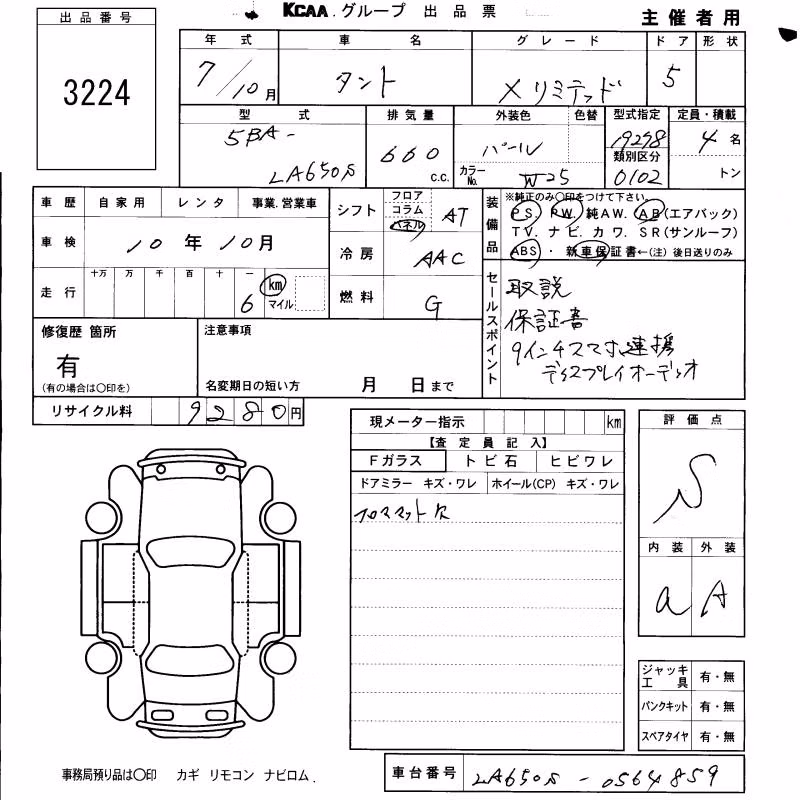 出品番号
3224
KCAA グループ 出品票
主催者用
年式 車名 グレード ドア 形状
7/10月 タント X リミテッド 5
型式 排気量 外装色 色替 型式指定 定員・積載
5BA-
LA650S
660 c.c.
パール
カラーNo. W25
19298
類別区分
0102
4名
トン
車歴 自家用 レンタ 事業.営業車
車検 10年10月
走行 十万 万 千 百 十 一
6 km マイル
シフト フロア コラム パネル AT
冷房 AAC
燃料 G
装備品
※純正のみ〇印をつけて下さい。
PS. PW. 純AW. AB(エアバック)
TV. ナビ. カワ. SR(サンルーフ)
ABS ・ 新車保証書←(注) 後日送りのみ
セールスポイント
取説
保証書
9インチスマホ連携
ディスプレイオーディオ
修復歴 箇所
有
(有の場合は〇印を)
注意事項
名変期日の短い方 月 日まで
リサイクル料 9280円
現メーター指示 km
【査定員記入】
Fガラス トビ石 ヒビワレ
ドアミラー キズ・ワレ ホイール(CP) キズ・ワレ
フロアマット欠
評価点
S
内装 外装
a A
ジャッキ工具 有・無
パンクキット 有・無
スペアタイヤ 有・無
事務局預り品は〇印 カギ リモコン ナビロム.
車台番号 LA650S-0564859